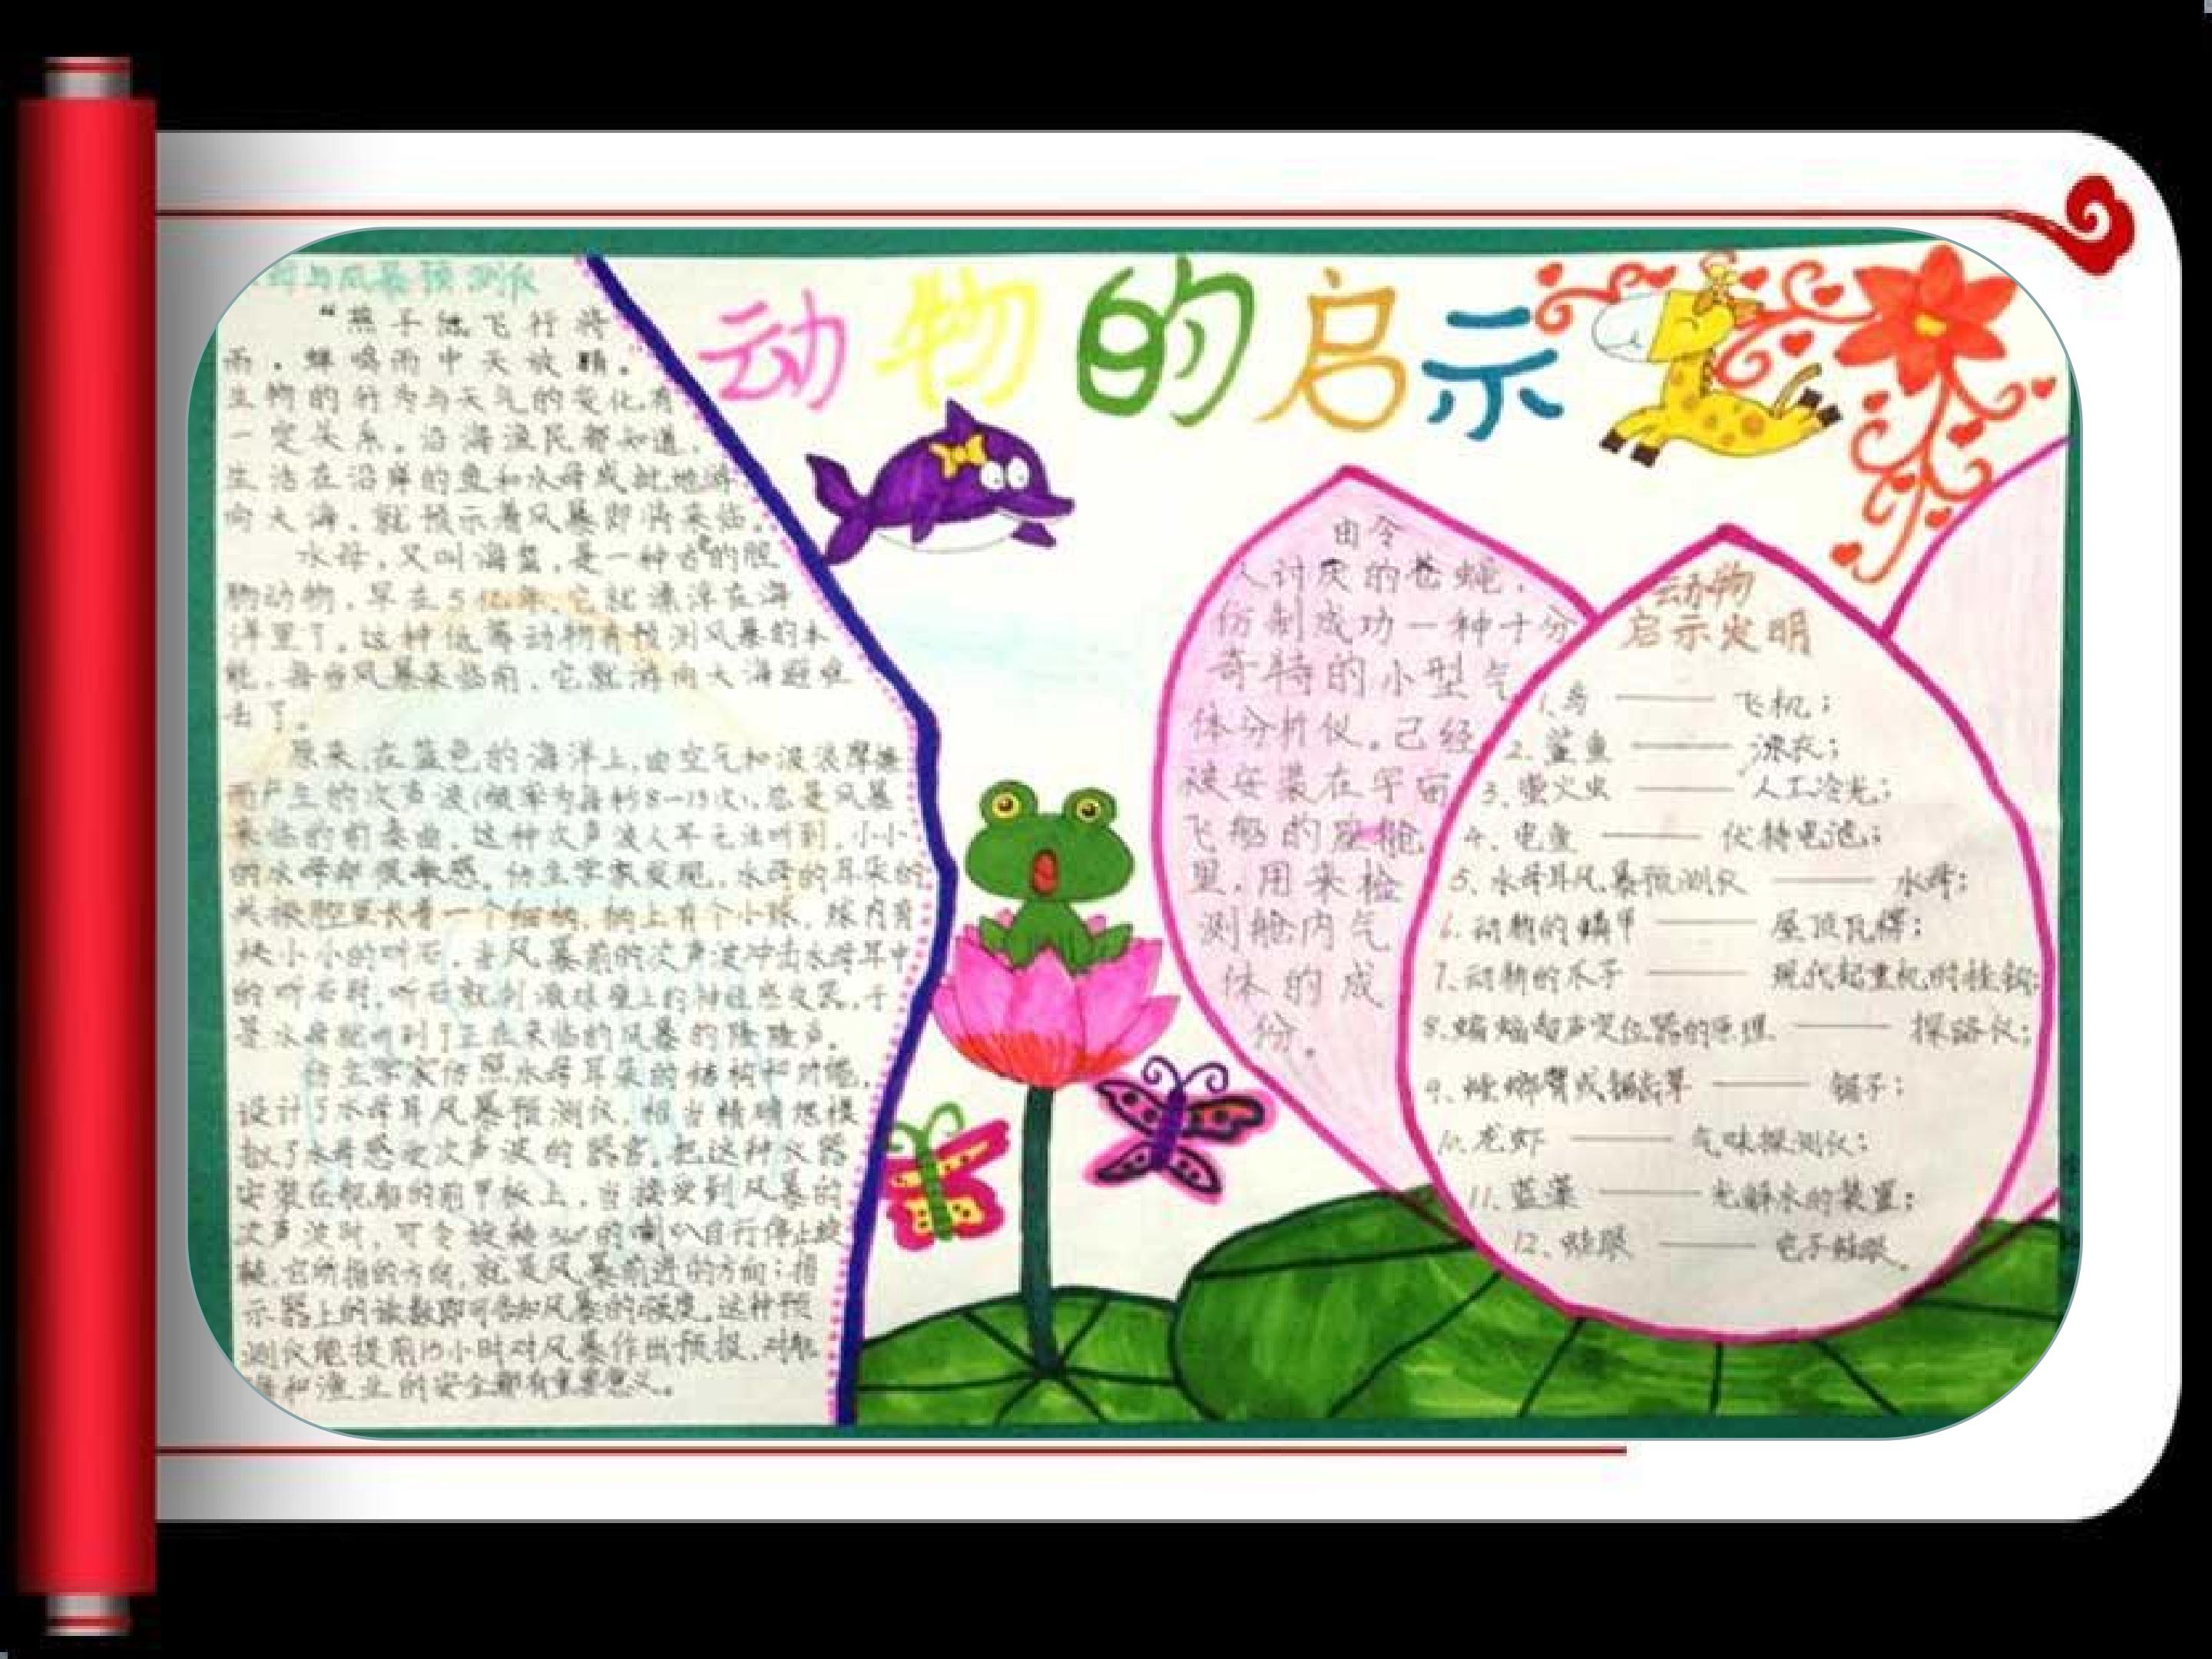 动物的启示
母与风暴预测仪
"燕子低飞行将
雨，蝉鸣雨中天放晴。"
生物的行为与天气的变化有
一定关系。沿海渔民都知道，
生活在沿岸的鱼和水母成批地游
向大海，就预示着风暴即将来临。
水母，又叫海蜇，是一种古老的腔
肠动物，早在5亿年，它就漂浮在海
洋里了。这种低等动物有预测风暴的本
能，每当风暴来临前，它就游向大海避难
去了。
原来，在蓝色的海洋上，由空气和波浪摩擦
而产生的次声波(频率为每秒8—13次)，总是风暴
来临的前奏曲。这种次声波人耳无法听到，小小
的水母却很敏感。仿生学家发现，水母的耳朵的
共振腔里长着一个细柄，柄上有个小球，球内有
块小小的听石，当风暴前的次声波冲击水母耳中
的听石时，听石就刺激球壁上的神经感受器，于
是水母就听到了正在来临的风暴的隆隆声。
仿生学家仿照水母耳朵的结构和功能，
设计了水母耳风暴预测仪，相当精确地模
拟了水母感受次声波的器官。把这种仪器
安装在舰船的前甲板上，当接受到风暴的
次声波时，可令旋转360°的喇叭自行停止旋
转，它所指的方向，就是风暴前进的方向；指
示器上的读数即可告知风暴的强度。这种预
测仪能提前15小时对风暴作出预报，对航
海和渔业的安全都有重要意义。
由令
人讨厌的苍蝇，
仿制成功一种十分
奇特的小型气
体分析仪。己经
被安装在宇宙
飞船的座舱
里，用来检
测舱内气
体的成
份。
动物
启示发明
1.鸟——飞机；
2.鲨鱼——泳衣；
3.萤火虫——人工冷光；
4.电鱼——伏特电池；
5.水母耳风暴预测仪——水母；
6.动物的鳞甲——屋顶瓦楞；
7.动物的爪子——现代起重机的挂钩；
8.蝙蝠超声定位器的原理——探路仪；
9.螳螂臂或锯齿草——锯子；
10.龙虾——气味探测仪；
11.蓝藻——光解水的装置；
12.蛙眼——电子蛙眼。